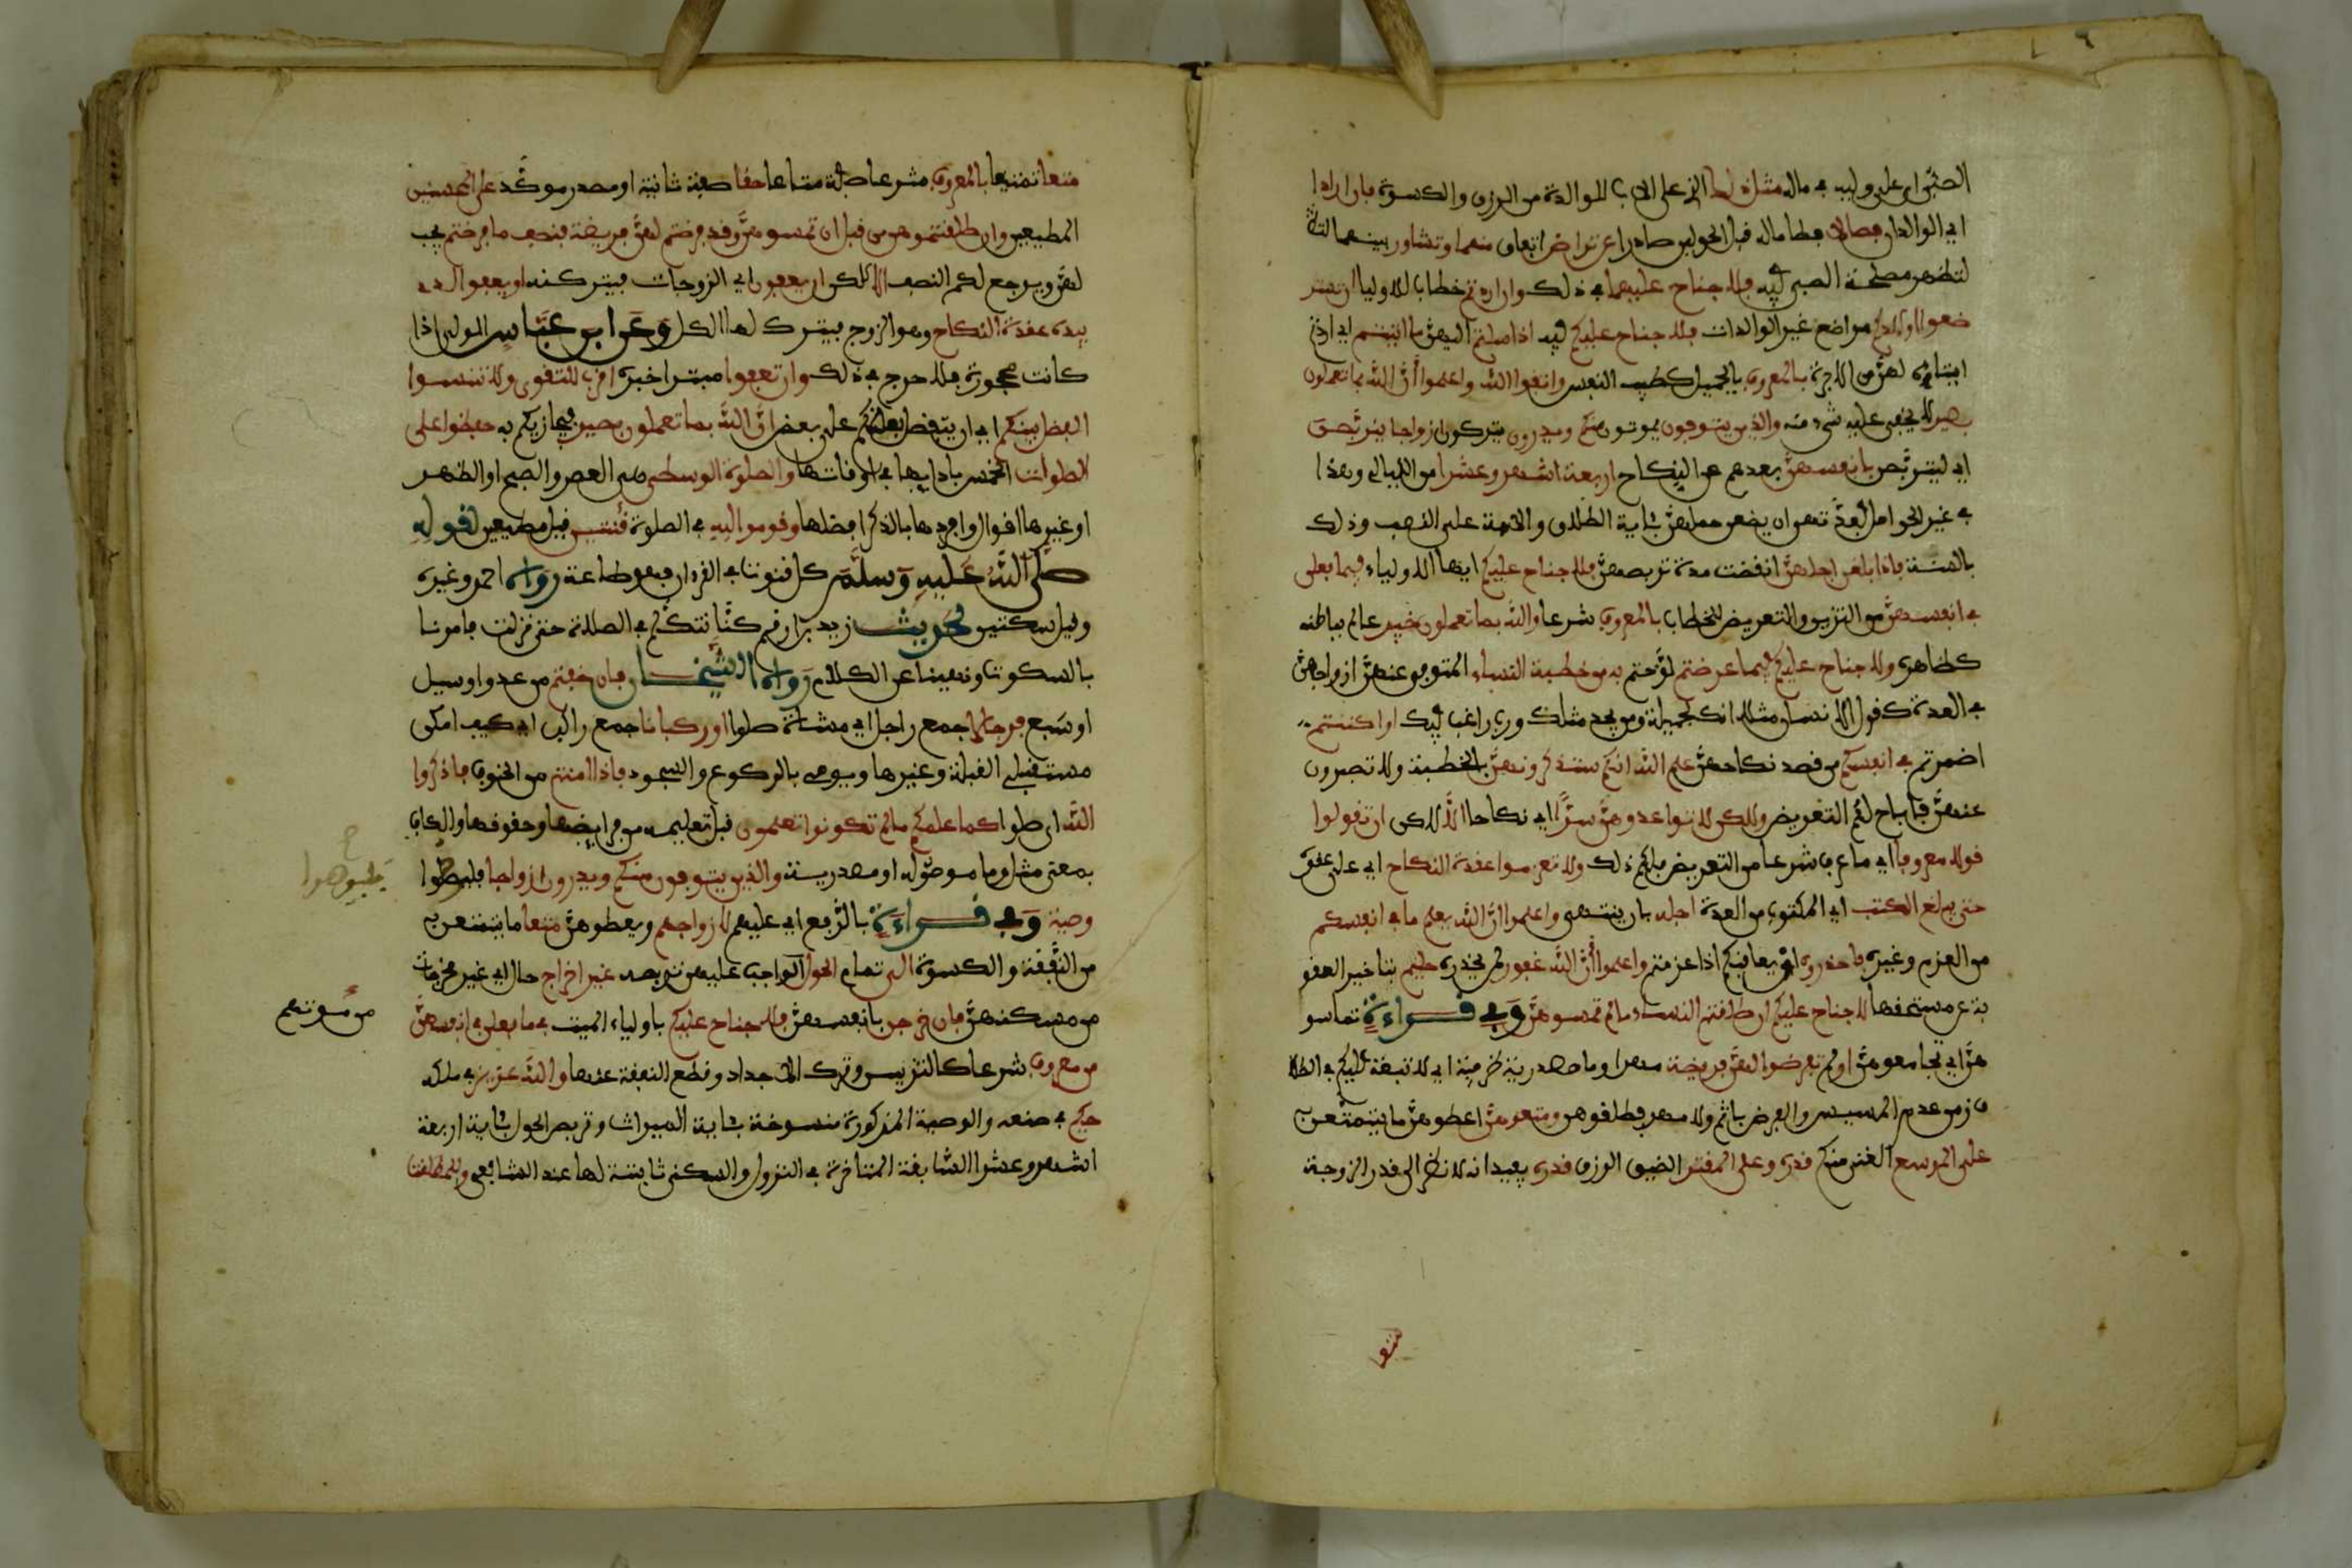 الصبي اى على وليه في ماله مثل ذلك الذى على الاب للوالدة من الرزق والكسوة فإن ارادا
اي الوالدان فصالا فطاما له قبل الحولين صادرا عن تراض اتفاق منهما وتشاور بينهما
لتظهر مصلحة الصبي فيه فلا جناح عليهما في ذلك وان اردتم خطاب للاولياء ان تستر
ضعوا اولادكم مراضع غير الوالدات فلا جناح عليكم فيه اذا سلمتم اليهن ما اتيتم اي اردتم
ايتاءه لهن من الاجرة بالمعروف بالجميل كطيب النفس واتقوا الله واعلموا أن الله بما تعملون
بصير لا يخفى عليه شيء منه والذين يتوفون يموتون منكم ويذرون يتركون ازواجا يتربصن
اي ليتربصن بانفسهن بعدهم عن النكاح اربعة اشهر وعشرا من الليالي وهذا
في غير الحوامل فعدتهن ان يضعن حملهن بئاية الطلاق والامة على النصف وذلك
بالسنة فإذا بلغن اجلهن انقضت مدة تربصهن فلا جناح عليكم ايها الاولياء فيما فعلن
في انفسهن من التزين والتعريض للخطاب بالمعروف شرعا والله بما تعملون خبير عالم بباطنه
كظاهره ولا جناح عليكم فيما عرضتم لوحتم به من خطبة النساء المتوفى عنهن ازواجهن
في العدة كقول الانسان مثلا انك لجميلة ومن يجد مثلك ورب راغب فيك او اكننتم
اضمرتم في انفسكم من قصد نكاحهن علم الله انكم ستذكرونهن بالخطبة ولا تصبرون
عنهن فأباح لكم التعريض ولكن لا تواعدوهن سرا اي نكاحا الا لكن ان تقولوا
قولا معروفا اي ما عرف شرعا من التعريض فلكم ذلك ولا تعزموا عقدة النكاح اي على عقده
حتى يبلغ الكتب اي المكتوب من العدة اجله بان ينتهي واعلموا ان الله يعلم ما في انفسكم
من العزم وغيره فاحذروه ان يعاقبكم اذا عزمتم واعلموا أن الله غفور لمن يحذره حليم بتاخير العقو
بة عن مستحقها لا جناح عليكم ان طلقتم النساء ما لم تمسوهن وفي قراءة تماسو
هن اي تجامعوهن او لم تفرضوا لهن فريضة مهرا وما مصدرية ظرفية اي لا تبعة عليكم في الطلا
ق زمن عدم المسيس والفرض باثم ولا مهر فطلقوهن ومتعوهن اعطوهن ما يتمتعن به
على الموسع الغني منكم قدره وعلى المقتر الضيق الرزق قدره يفيد انه لا نظر الى قدر الزوجة
متعا
متعا تمتيعا بالمعروف شرعا صفة متاعا حقا صفة ثانية او مصدر موكد على المحسنين
المطيعين وان طلقتموهن من قبل ان تمسوهن وقد فرضتم لهن فريضة فنصف ما فرضتم يجب
لهن ويرجع لكم النصف الا لكن ان يعفون اي الزوجات فيتركنه او يعفو الذي
بيده عقدة النكاح وهو الزوج فيترك لها الكل وعن ابن عباس الولي اذا
كانت محجورة فلا حرج في ذلك وان تعفوا مبتدا خبره اقرب للتقوى ولا تنسوا
الفضل بينكم اي ان يتفضل بعضكم على بعض ان الله بما تعملون بصير فيجازيكم به حفظوا على
الصلوات الخمس بادايها في اوقاتها والصلوة الوسطى هي العصر والصبح او الظهر
او غيرها اقوال وافردها بالذكر لفضلها وقوموا لله في الصلوة قنتين قيل مطيعين لقوله
صلى الله عليه وسلم كل قنوت في القرءان فهو طاعة رواه احمد وغيره
وقيل ساكتين لحديث زيد بن ارقم كنا نتكلم في الصلاة حتى نزلت فامرنا
بالسكوت ونهينا عن الكلام رواه الشيخان فإن خفتم من عدو او سيل
او سبع فرجالا جمع راجل اي مشاة صلوا او ركبانا جمع راكب اي كيف امكن
مستقبلي القبلة وغيرها ويومي بالركوع والسجود فإذا امنتم من الخوف فاذكروا
الله اى صلوا كما علمكم ما لم تكونوا تعلمون قبل تعليمه من فرايضها وحقوقها والكاف
بمعنى مثل وما موصولة او مصدرية والذين يتوفون منكم ويذرون ازواجا فليوصوا
وصية وفي قراءة بالرفع اي عليهم لازواجهم ويعطوهن متعا ما يتمتعن به
من النفقة والكسوة الى تمام الحول الواجب عليهن تربصه غير اخراج حال اي غير مخرجات
من مسكنهن فإن خرجن بانفسهن فلا جناح عليكم ياولياء الميت في ما فعلن في انفسهن
من معروف شرعا كالتزيين وترك الاحداد وقطع النفقة عنها والله عزيز في ملكه
حكيم في صنعه والوصية المذكورة منسوخة بئاية الميراث وتربص الحول بئاية اربعة
اشهر وعشرا السابقة المتاخرة في النزول والسكنى ثابتة لها عند الشافعي وللمطلقت